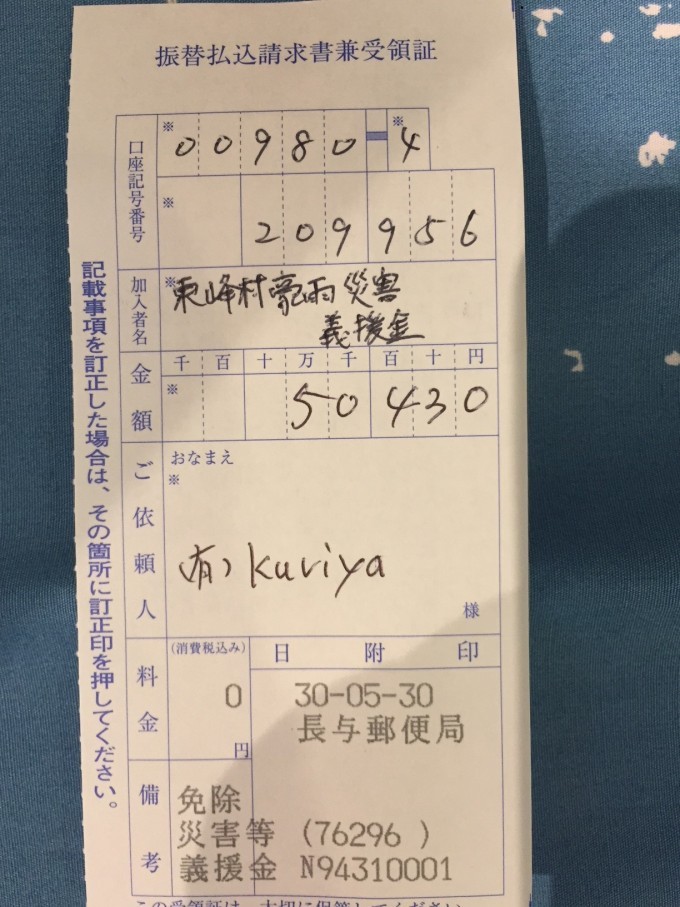 振替払込請求書兼受領証
口座記号番号
※ 00980-4 ※
※ 209956
加入者名
※ 東峰村豪雨災害
義援金
金額
千 百 十 万 千 百 十 円
※ 50430
ご依頼人
おなまえ
※
(有) Kuriya
様
料金
(消費税込み)
0
円
日 附 印
30-05-30
長与郵便局
備考
免除
災害等 (76296 )
義援金 N94310001
記載事項を訂正した場合は、その箇所に訂正印を押してください。
この受領証は、大切に保管してください